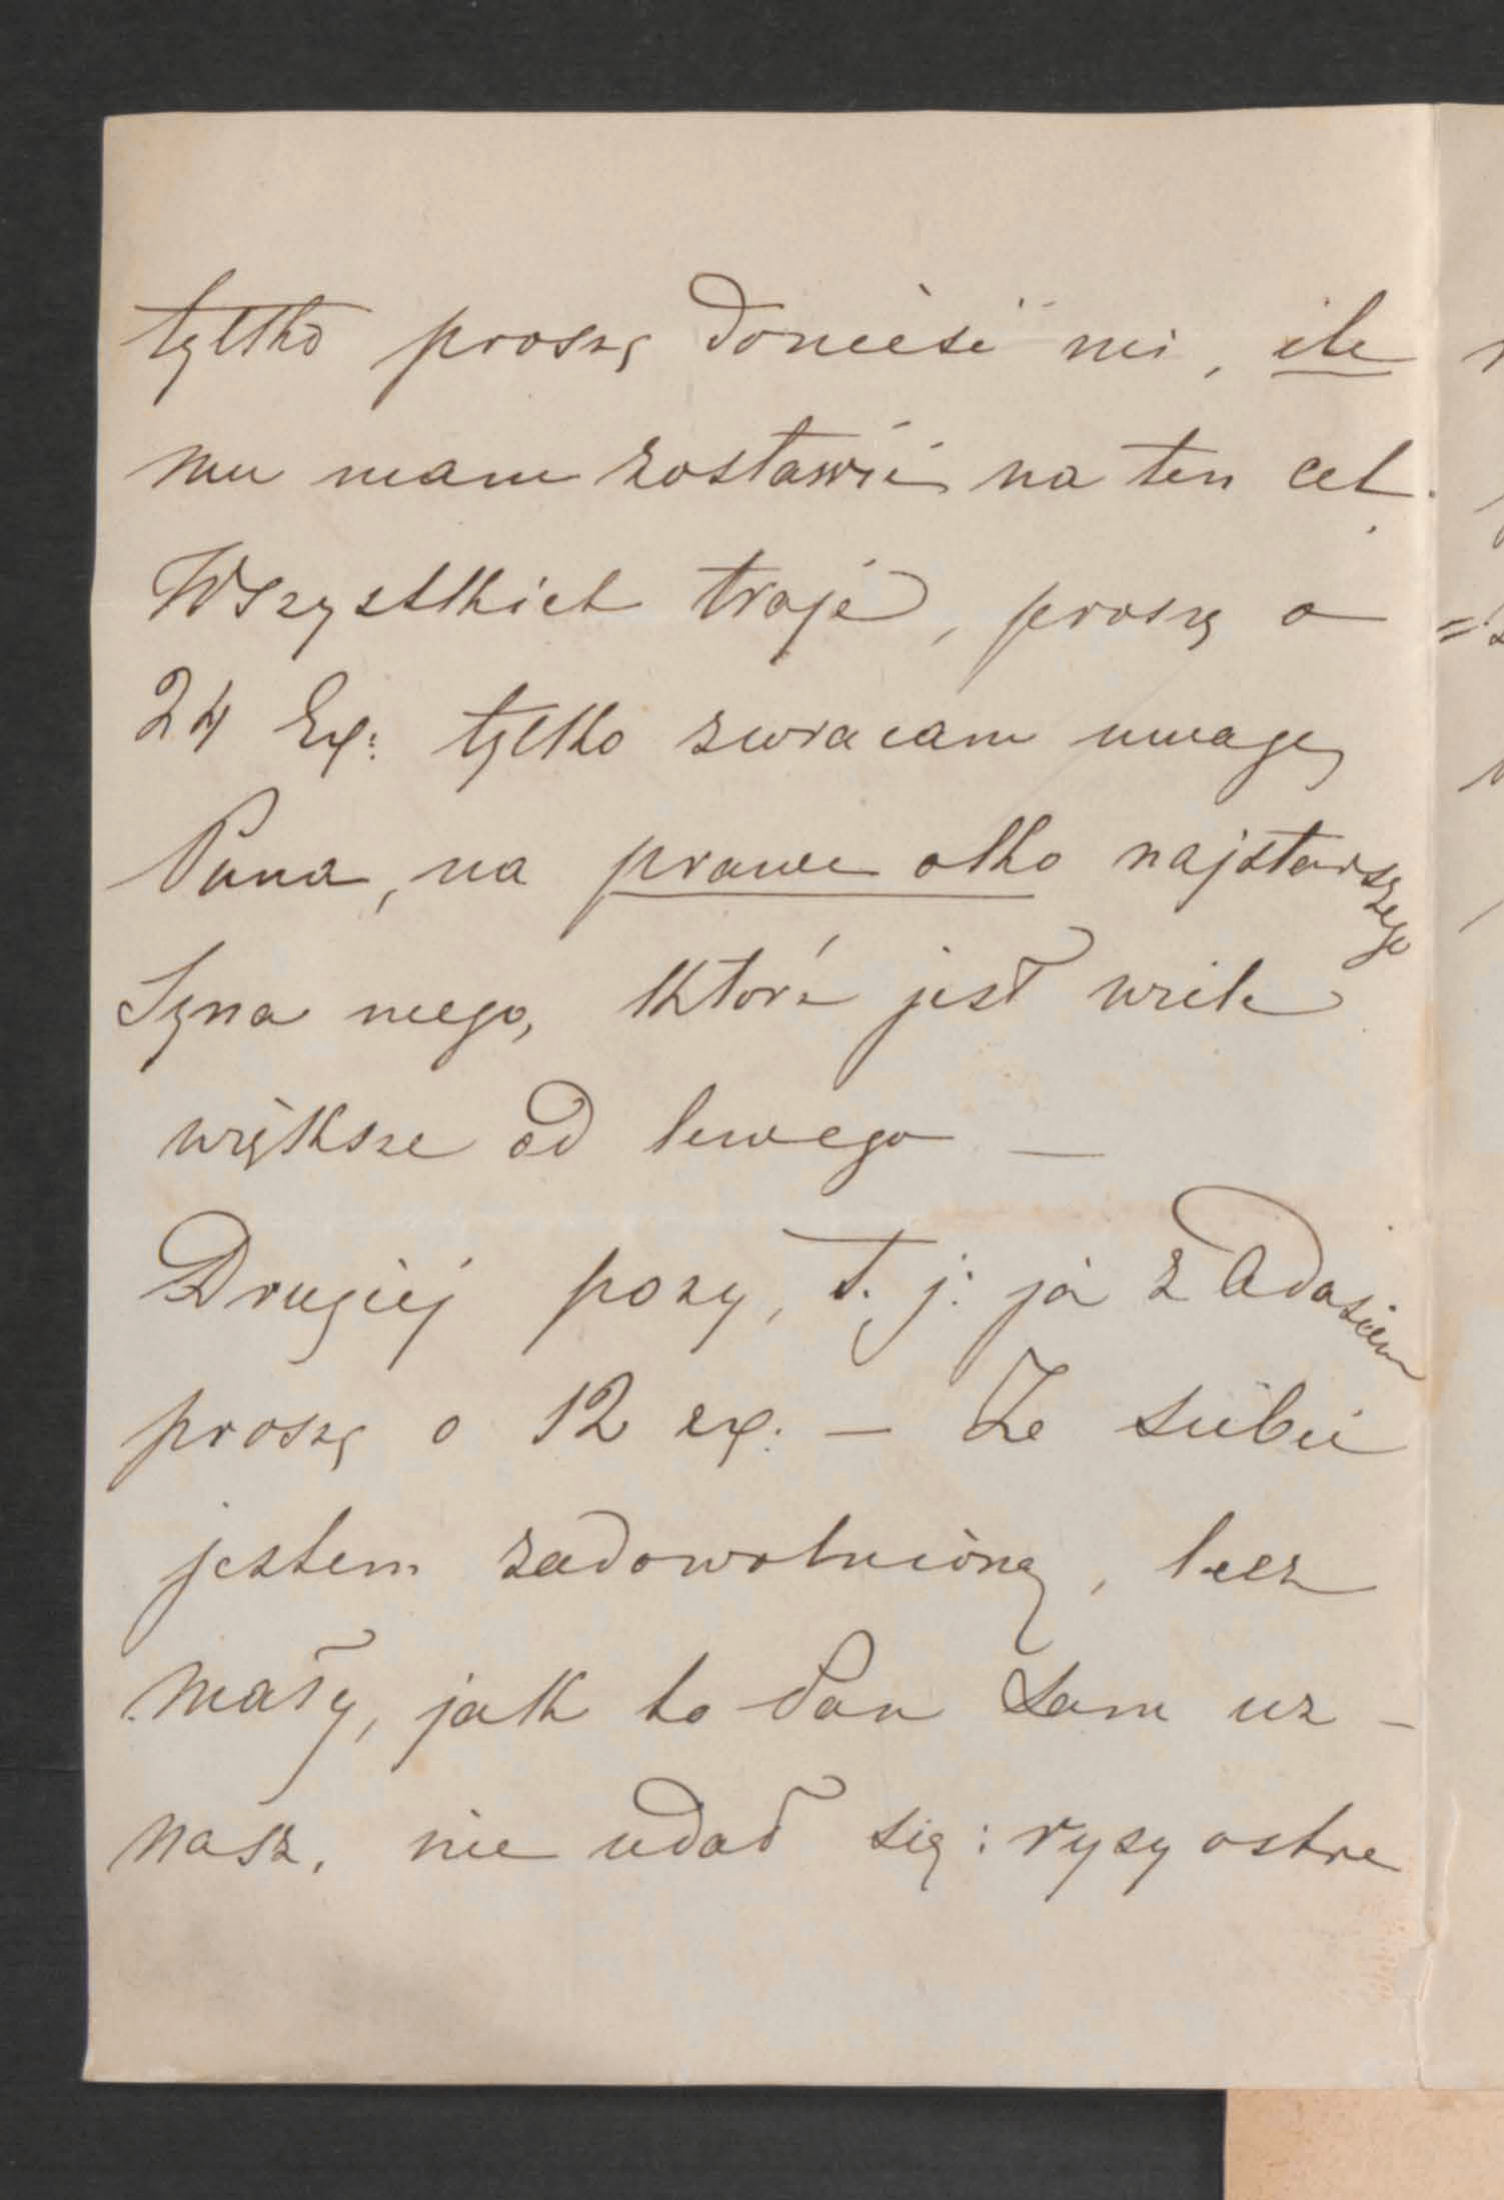 tylko proszę donieść mi, ile
mu mam zostawić na ten cel.
Wszystkich troje, proszę o
24 Ex: tylko zwracam uwagę
Pana, na prawe oko najstarszego
Syna mego, które jest wiele
większe od lewego —
Drugiej pozy, t. j: ja z Adasiem
proszę o 12 ex: — Ze siebie
jestem zadowolnioną, lecz
mały, jak to Pan sam uz-
nasz, nie udał się: rysy ostre